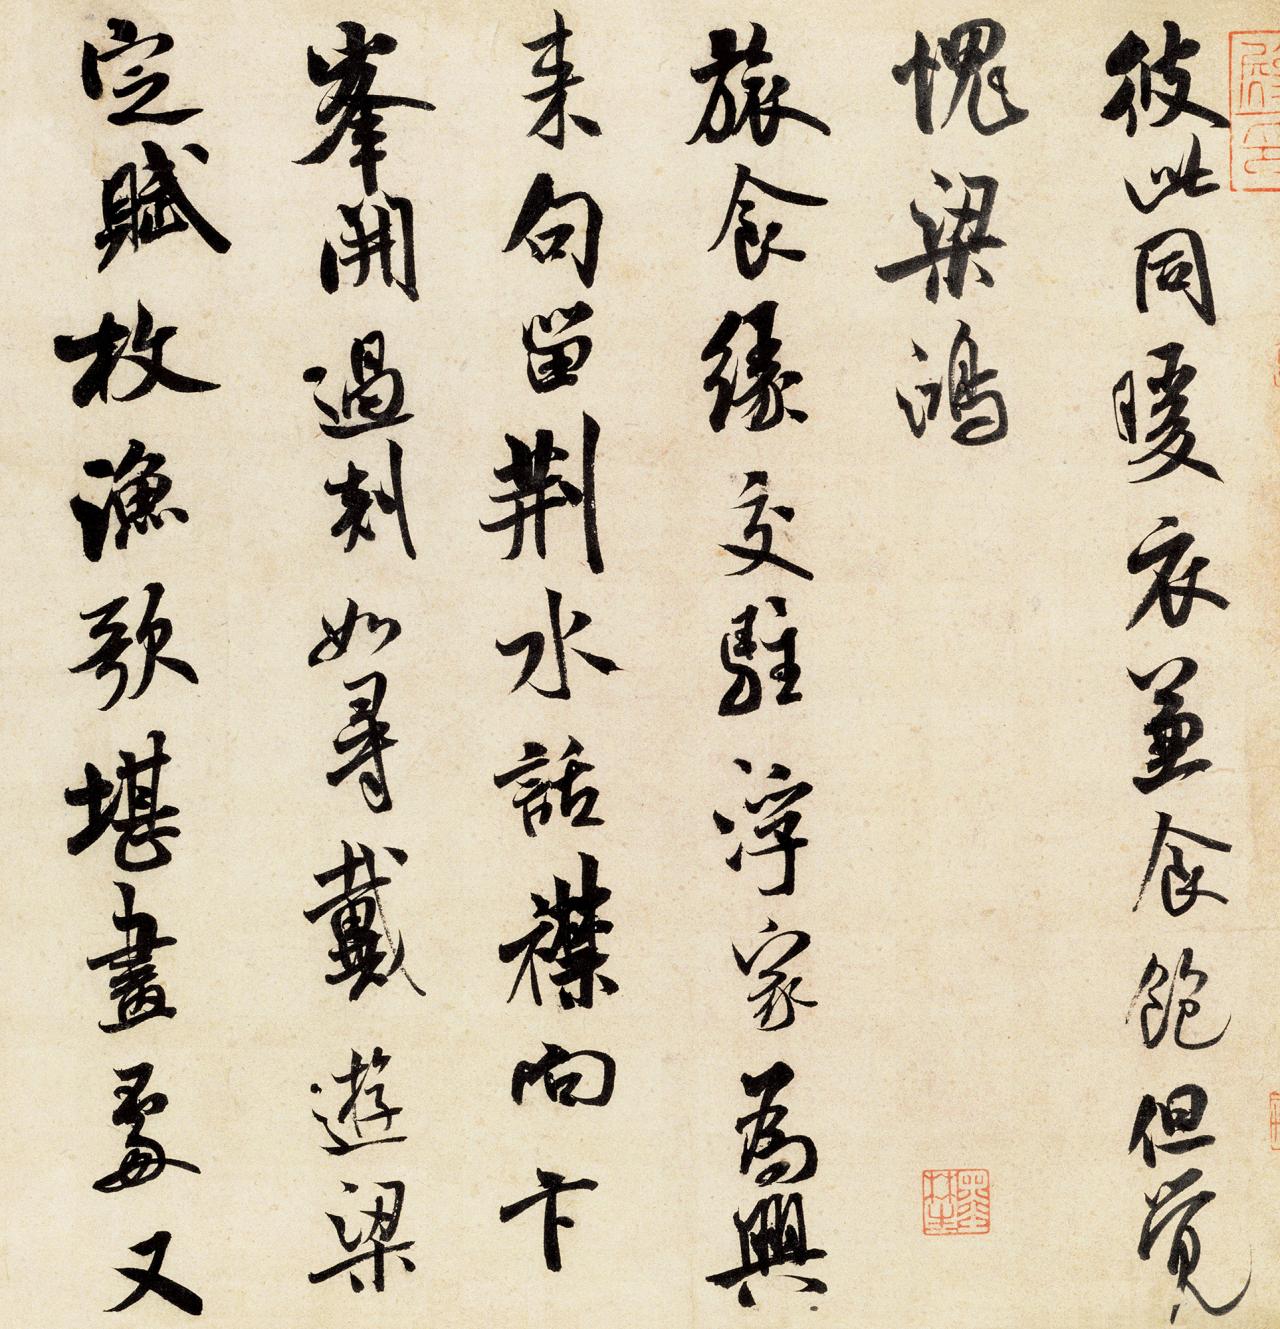 彼此同暖衣兼食飽但覺
愧梁鴻
旅食緣交駐浮家為興
来句留荆水話襟向卞
峯開過剡如尋戴遊梁
定賦枚漁歌堪畫處又